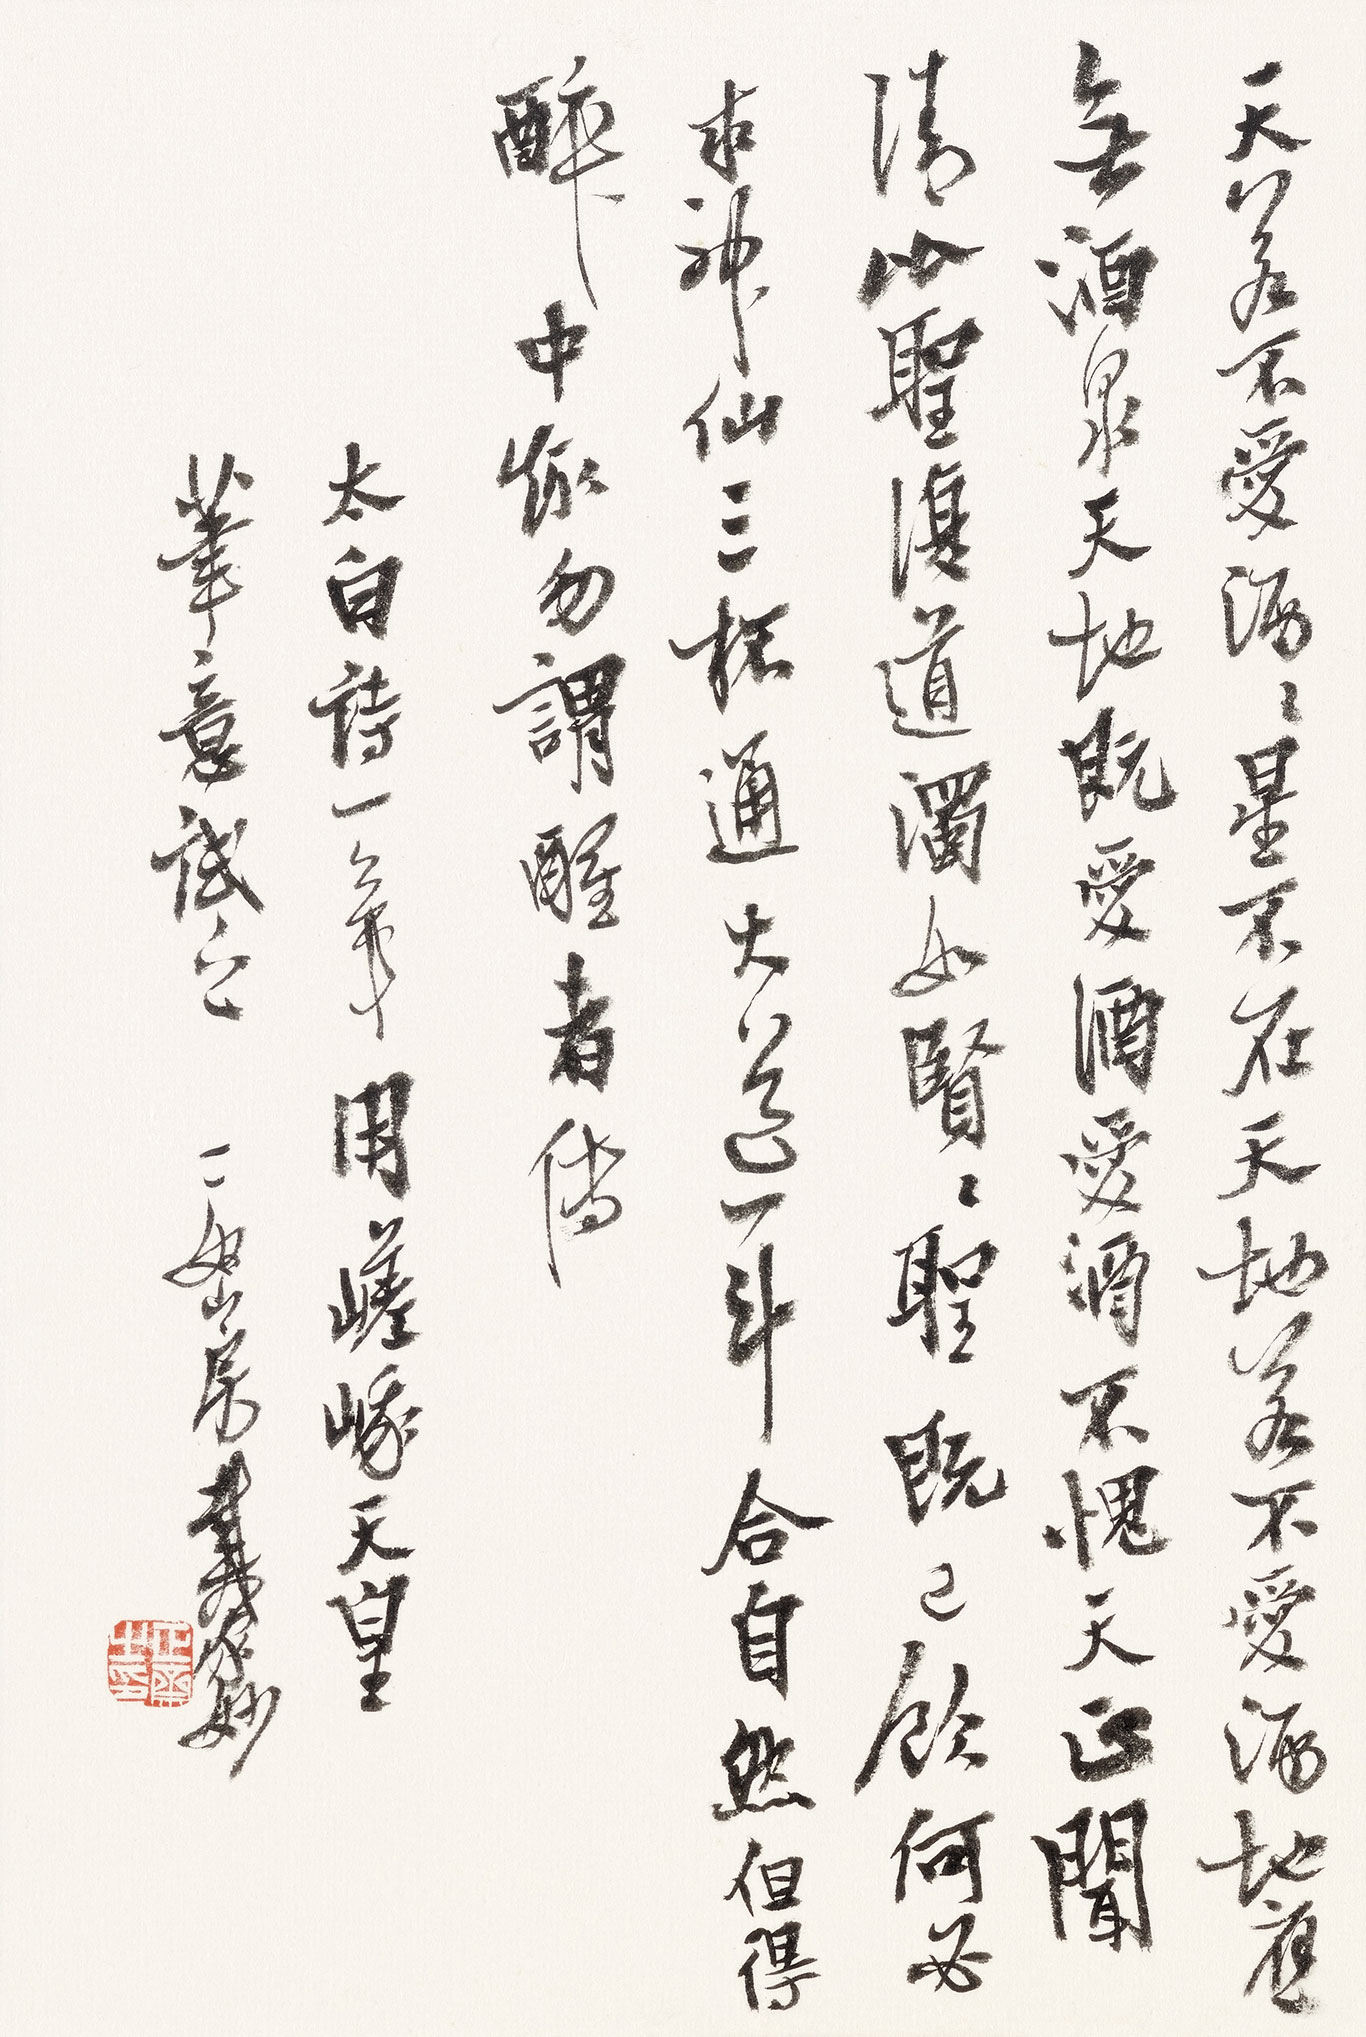 天若不愛酒〻星不在天地若不愛酒地應
無酒泉天地既愛酒愛酒不愧天已聞
清比聖復道濁如賢〻聖既已飲何必
求神仙三杯通大道一斗合自然但得
醉中趣勿謂醒者傳
太白詩一章用嵯峨天皇
筆意試之 二如山房戴家妙